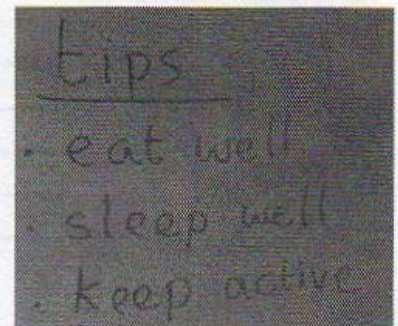 tips
· eat well
· sleep well
· keep active